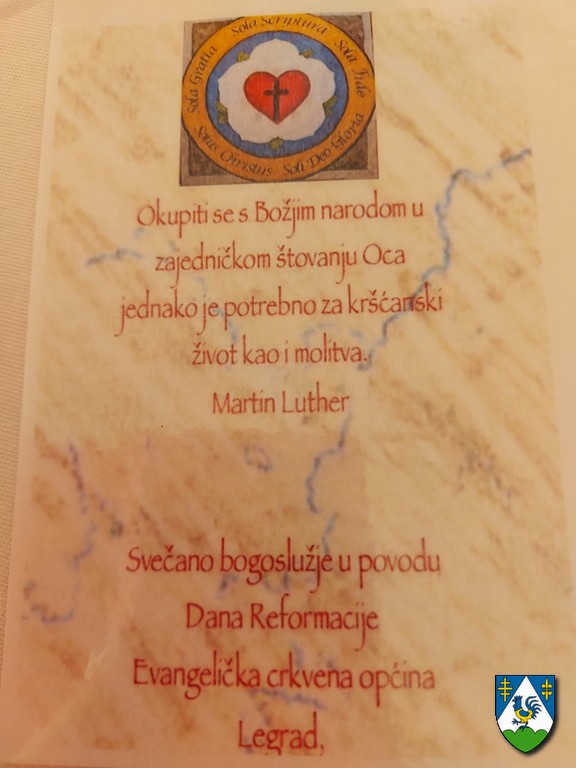 Sola Gratia Sola Scriptura Sola Fide
Solus Christus Soli Deo Gloria
Okupiti se s Božjim narodom u
zajedničkom štovanju Oca
jednako je potrebno za kršćanski
život kao i molitva.
Martin Luther
Svečano bogoslužje u povodu
Dana Reformacije
Evangelička crkvena općina
Legrad,